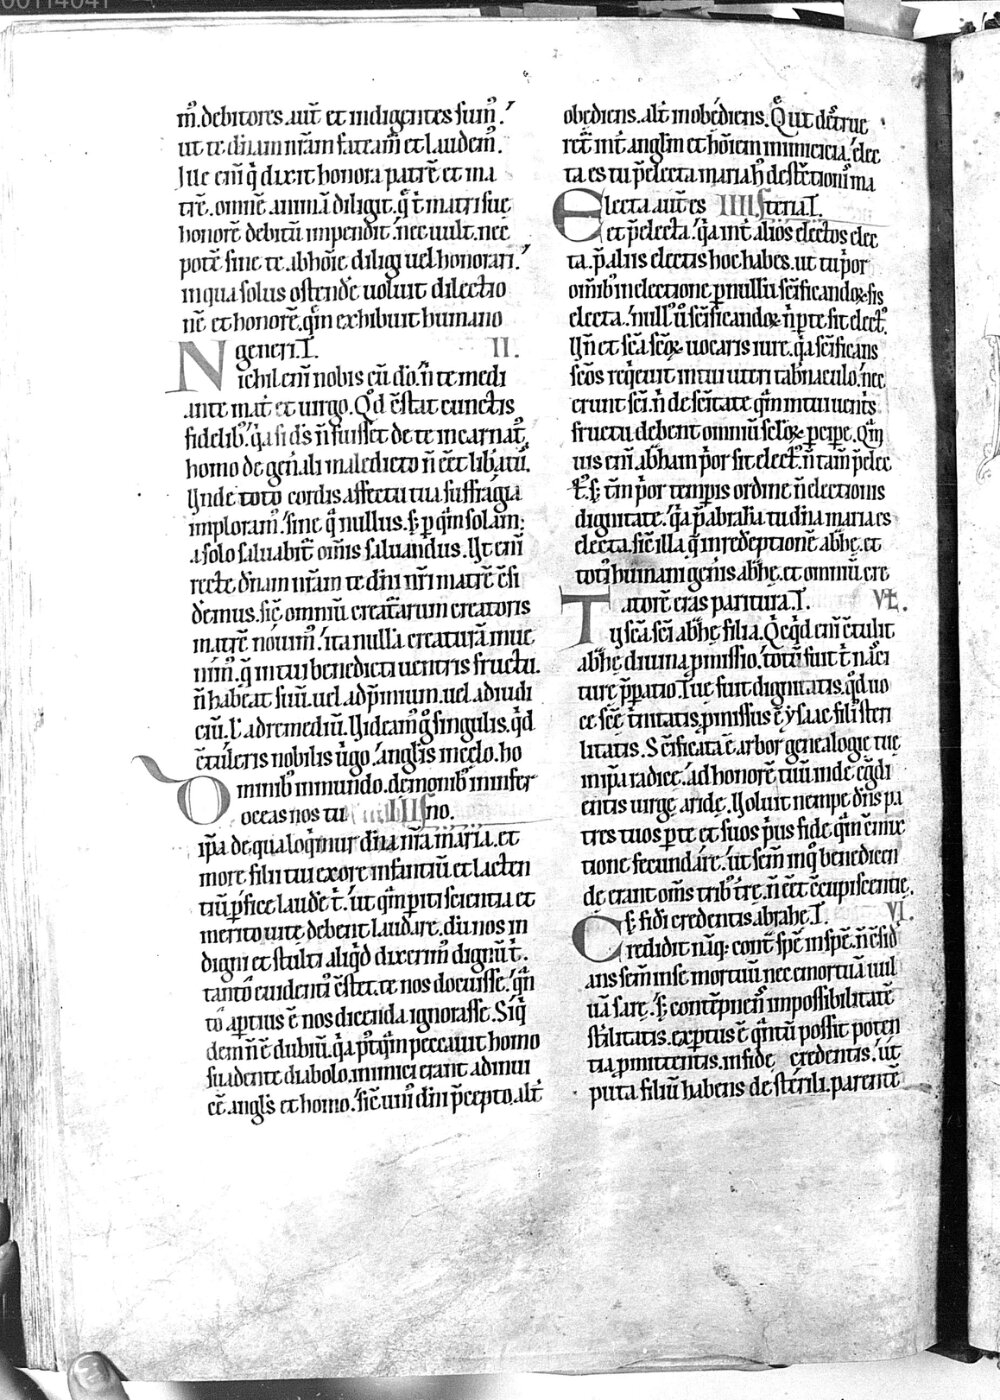 00114041
m̄. debitores. aut̄ et indigentes sum᷒.
ut te dn̄am nr̄am fateam᷒ et laudem᷒.
Ille eni̅ q̇ dixit honora patrē et ma
trē. omnē animā diligit. q̄ t̄ matri sue
honorē debitū impendit. nec uult. nec
potē sine te. ab hoīe diligi uel honorari.
in qua solus ostendē uoluit dilectio
nē et honorē. qm̄ exhibuit humano
generi. T. II.
Nichil eni̅ nobis cū dō. n̄ te medi
ante mat̄ et uirgo. Qd̄ c̄stat cunctis
fidelib᷒. q̇a si ds̄ n̄ fuisset de te incarnat᷒,
homo de gen̄ali maledicto n̄ eēt lib̄atu᷒.
Unde toto cordis affectu tua suffragia
imploram᷒. sine q̄ nullus. s; p qm̄ solam:
a solo saluabit᷒ om̄is saluandus. Ut eni̅
recte dn̄am nr̄am te dn̄i nr̄i matrē c̄fi
demus. sic̄ omniū creat᷒arum creatoris
matrē nouim᷒. ita nulla creaturā inue
nim᷒. q̄ in tui benedicti uentris fructu.
n̄ habeat suū. uel ad p̄mium. uel ad iudi
ciū. l̄ ad remediū. Uideam᷒ g̊ singulis. qd̄
c̄tuleris nobilis ūgo. angl̄is in celo. ho
minib᷒ in mundo. demonib᷒ in infer
Doceas nos tu III no.
ip̄a de qua loq̇mur dn̄a nr̄a maria. et
more filii tui ex ore infantiū et lacten
tiū p̄fice laudē t̄. ut qm̄ p̄iti scientia et
merito uite debent laudare. dū nos in
digni et stulti aliq̇d dixerim᷒ dignū t̄.
tanto euidenti᷒ c̄stet. te nos docuisse. qn̄
to aptius ē nos dicenda ignorasse. Siq̇
dem n̄ ē dubiū. q̇a p᷒tqm̄ peccauit homo
suadente diabolo. inimici erant ad inui
cē. angl̄s et homo. sic̄ un᷒ dn̄i p̄cepto. alt̄
obediens. alt̄ inobediens. Q̄ ut det̄rue
ret᷒ int̄ angl̄m et hōiem inimicicia. elec
ta es tu p̄electa maria h᷒ destr̄ctioni᷒ ma
teria. T. IIII.
Electa aut̄ es
et p̄electa. q̇a int̄ alios electos elec
ta. p̄ aliis electis hoc habes. ut tu p̄or
om̄ib᷒ in electione p nulliū sc̄ificandoꝝ sis
electa. null᷒ ū sc̄ificandoꝝ n̄ p te sit elect᷒.
Un̄ et sc̄a sc̄oꝝ uocaris iure. q̇a sc̄ificans
sc̄os req̇euit in tui uteri tab̄naculo. nec
erunt sc̄i. n̄ de sc̄itate qm̄ in tui uent̄s
fructu debent omniū scl̄oꝝ p̄cipe. Qm̄
uis eni̅ ab̄ham p̄or sit elect᷒. n̄ tam̄ p̄elec
t᷒. s; t̄m p̄or temp̄is ordine n̄ electionis
dignitate. q̇a p̄ abraha tu dn̄a maria es
electa. sic̄ illa q̄ in redēptionē ab̄he. et
toti᷒ humani gen̄is ab̄he. et omniū cre
atorē eras paritura. T. V.
Tu sc̄a sc̄i ab̄he filia. Q̇cq̇d eni̅ c̄tulit
ab̄he diuina p̄missio. totū fuit t̄ nasci
ture p̄paratio. Tue fuit dignitatis. qd̄ uo
ce sc̄e t̄nitatis. p̄missus ē ysaac filii steri
litatis. Sc̄ificata ē arbor genealogie tue
in ip̄a radice. ad honorē tuū inde eḡdi
entis uirge aride. Uoluit nempe dn̄s pa
tres tuos p te et suos p̄us fide qm̄ c̄mix
tione fecundare. ut sem̄ in q̇ benedicen
de erant om̄s trib᷒ t̄re. n̄ eēt c̄cupiscentie.
s; fidi credentis abrahe. T. VI.
Credidit nāq; cont̄ spē in spē. n̄ c̄sid̄
ans sem̄ in se mortuū nec emortuā uul
uā sare. s; contēpnen᷒ impossibilitatē
st̄ilitatis. exp̄tus ē qn̄tū possit poten
tia p̄mittentis. in fide credentis. ut
puta filiū habens de st̄erili. parentē